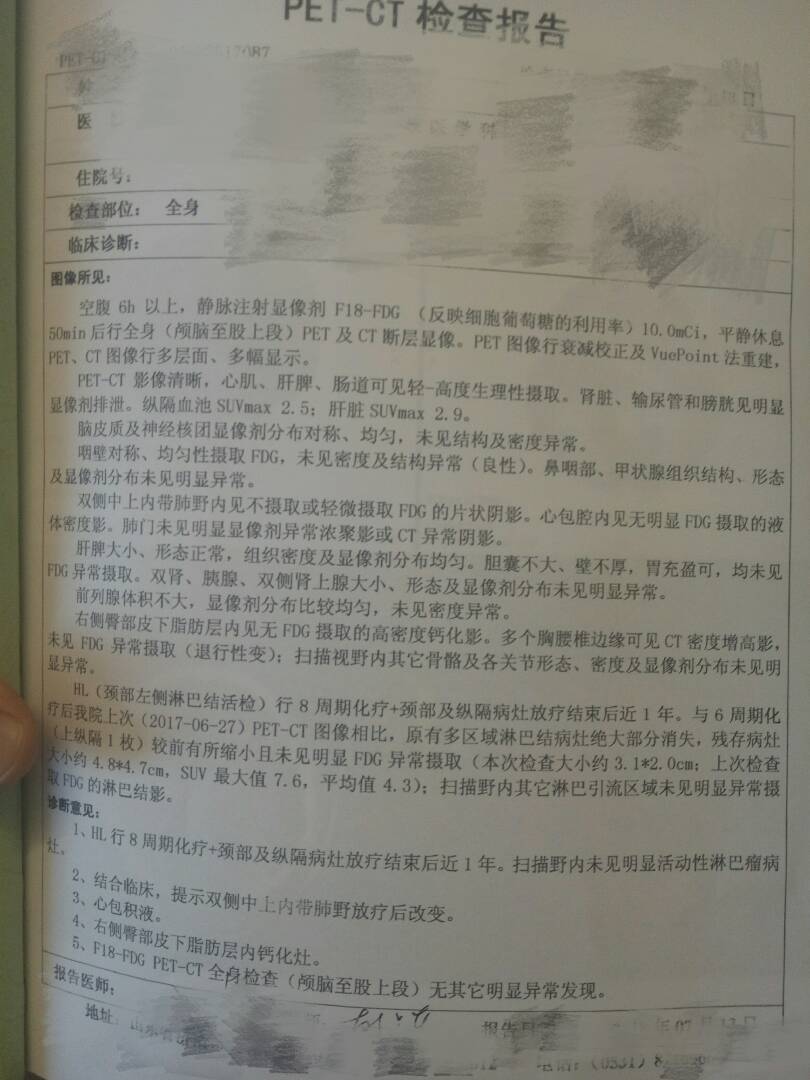 PET-CT 检查报告
PET-CT
医
住院号：
检查部位： 全身
临床诊断：
图像所见：
空腹 6h 以上，静脉注射显像剂 F18-FDG （反映细胞葡萄糖的利用率）10.0mCi，平静休息
50min 后行全身（颅脑至股上段）PET 及 CT 断层显像。PET 图像行衰减校正及 VuePoint 法重建，
PET、CT 图像行多层面、多幅显示。
PET-CT 影像清晰，心肌、肝脾、肠道可见轻-高度生理性摄取。肾脏、输尿管和膀胱见明显
显像剂排泄。纵隔血池 SUVmax 2.5；肝脏 SUVmax 2.9。
脑皮质及神经核团显像剂分布对称、均匀，未见结构及密度异常。
咽壁对称、均匀性摄取 FDG，未见密度及结构异常（良性）。鼻咽部、甲状腺组织结构、形态
及显像剂分布未见明显异常。
双侧中上内带肺野内见不摄取或轻微摄取 FDG 的片状阴影。心包腔内见无明显 FDG 摄取的液
体密度影。肺门未见明显显像剂异常浓聚影或 CT 异常阴影。
肝脾大小、形态正常，组织密度及显像剂分布均匀。胆囊不大、壁不厚，胃充盈可，均未见
FDG 异常摄取。双肾、胰腺、双侧肾上腺大小、形态及显像剂分布未见明显异常。
前列腺体积不大，显像剂分布比较均匀，未见密度异常。
右侧臀部皮下脂肪层内见无 FDG 摄取的高密度钙化影。多个胸腰椎边缘可见 CT 密度增高影，
未见 FDG 异常摄取（退行性变）；扫描视野内其它骨骼及各关节形态、密度及显像剂分布未见明
显异常。
HL（颈部左侧淋巴结活检）行 8 周期化疗+颈部及纵隔病灶放疗结束后近 1 年。与 6 周期化
疗后我院上次（2017-06-27）PET-CT 图像相比，原有多区域淋巴结病灶绝大部分消失，残存病灶
（上纵隔 1 枚）较前有所缩小且未见明显 FDG 异常摄取（本次检查大小约 3.1*2.0cm；上次检查
大小约 4.8*4.7cm，SUV 最大值 7.6，平均值 4.3）；扫描野内其它淋巴引流区域未见明显异常摄
取 FDG 的淋巴结影。
诊断意见：
1、HL 行 8 周期化疗+颈部及纵隔病灶放疗结束后近 1 年。扫描野内未见明显活动性淋巴瘤病
灶。
2、结合临床，提示双侧中上内带肺野放疗后改变。
3、心包积液。
4、右侧臀部皮下脂肪层内钙化灶。
5、F18-FDG PET-CT 全身检查（颅脑至股上段）无其它明显异常发现。
报告医师：
地址：